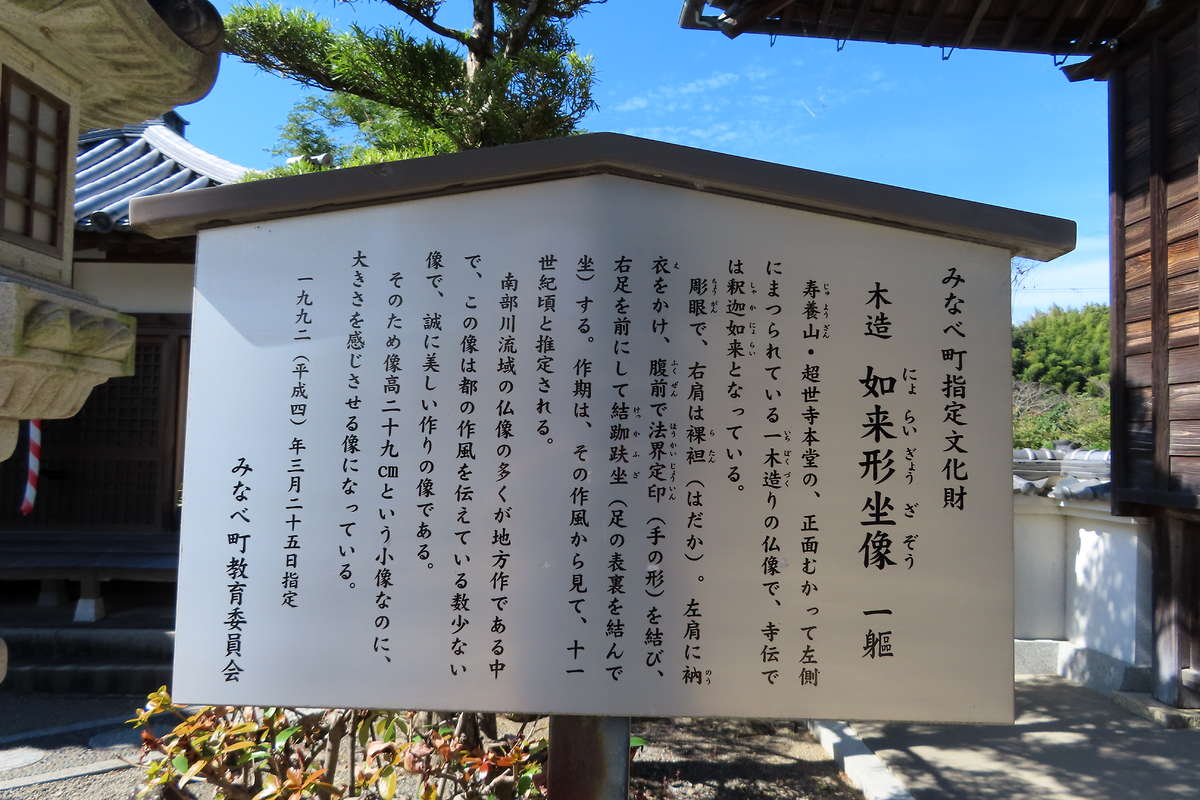 みなべ町指定文化財
木造 如来形坐像 一軀
にょらいぎょうざぞう
寿養山・超世寺本堂の、正面むかって左側
じゅようざん
にまつられている一木造りの仏像で、寺伝で
いちぼくづく
は釈迦如来となっている。
しゃかにょらい
彫眼で、右肩は裸袒（はだか）。左肩に衲
ちょうがん らたん のう
衣をかけ、腹前で法界定印（手の形）を結び、
え ふくぜん ほうかいじょういん
右足を前にして結跏趺坐（足の表裏を結んで
けっかふざ
坐）する。作期は、その作風から見て、十一
世紀頃と推定される。
南部川流域の仏像の多くが地方作である中
で、この像は都の作風を伝えている数少ない
像で、誠に美しい作りの像である。
そのため像高二十九cmという小像なのに、
大きさを感じさせる像になっている。
一九九二（平成四）年三月二十五日指定
みなべ町教育委員会